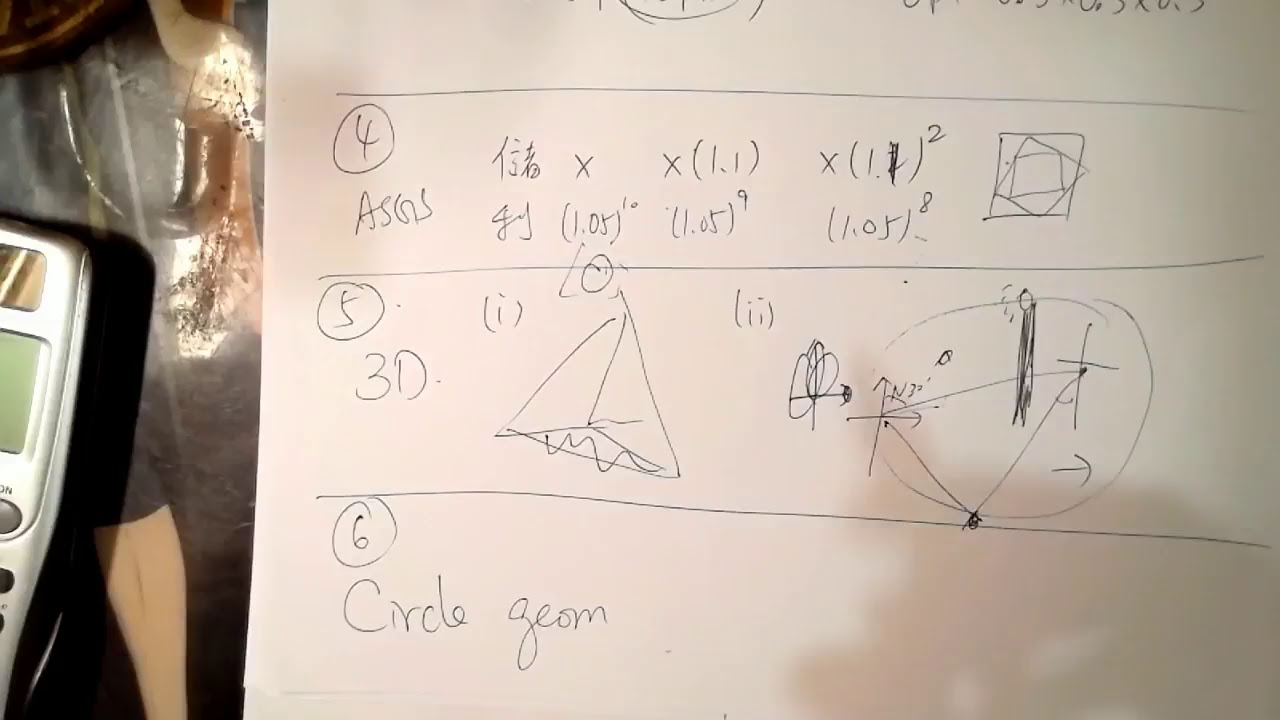 ④ 儲 x x(1.1) x(1.1)²
ASGS 利 (1.05)¹⁰ (1.05)⁹ (1.05)⁸
⑤ (i) (ii)
3D.
N30°
⑥
Circle geom
ON